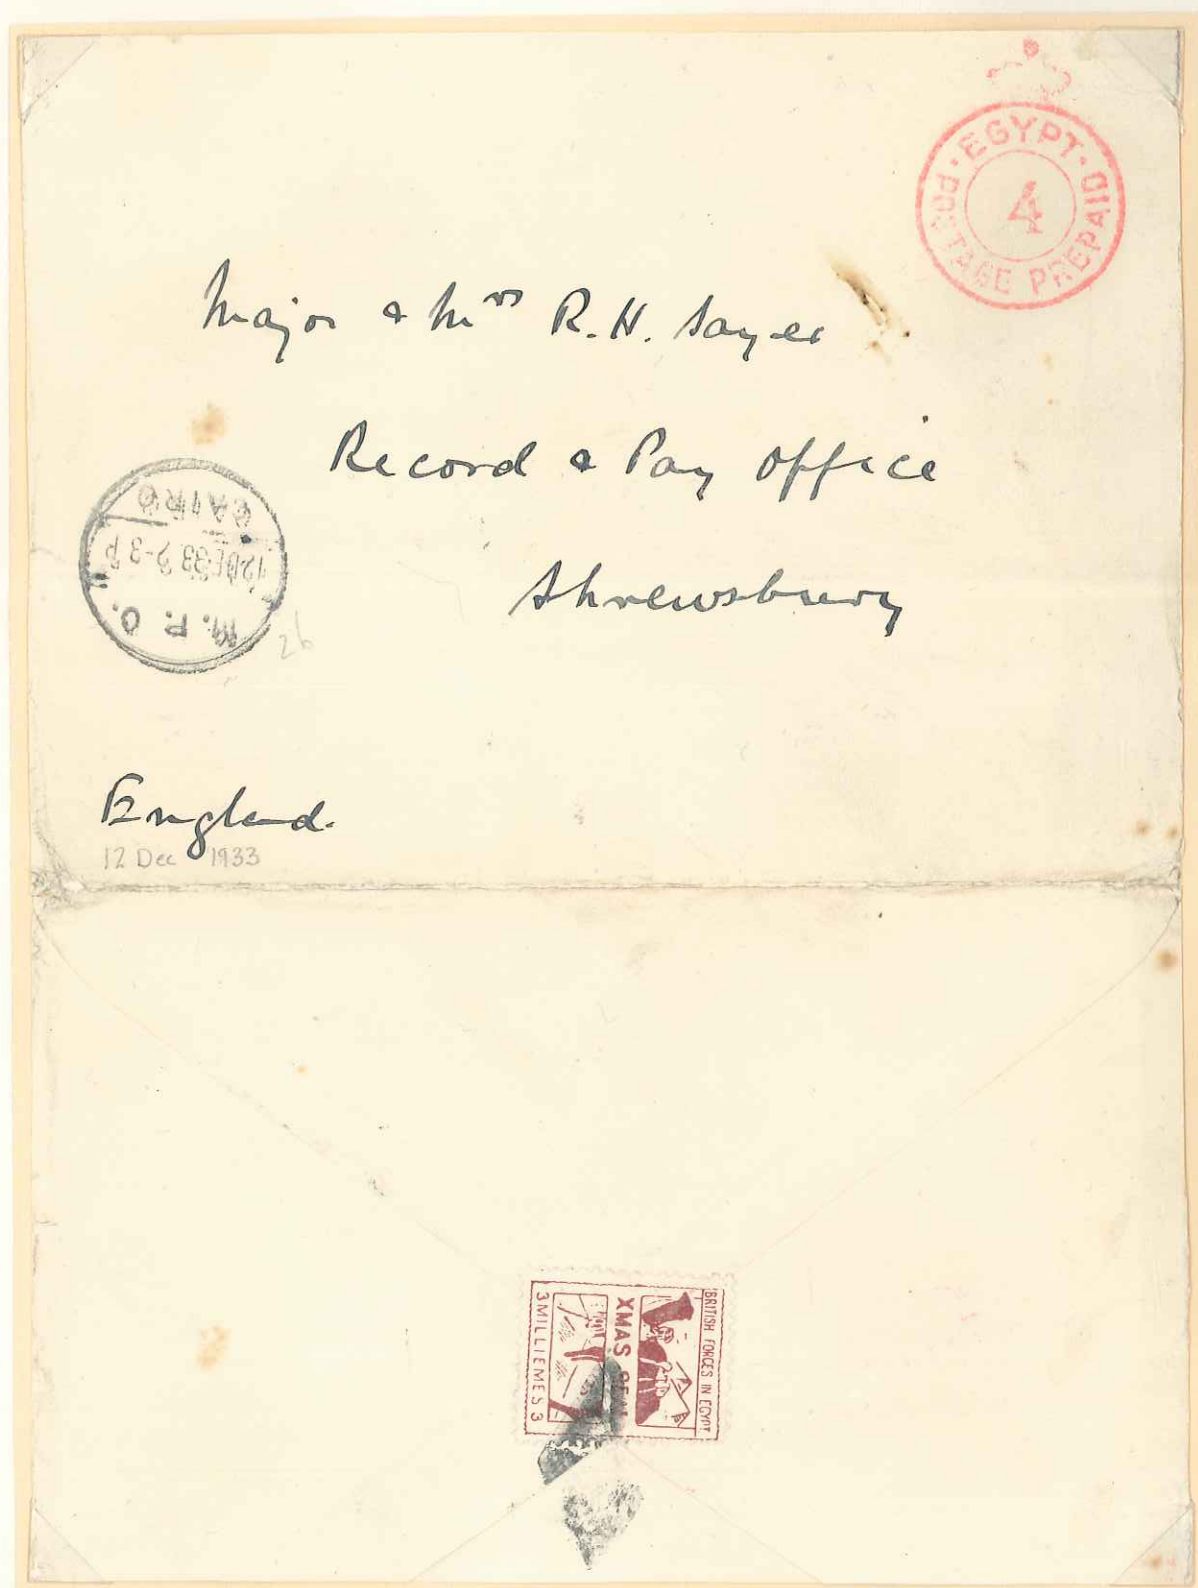 EGYPT
4
POSTAGE PREPAID
Major & Mrs R.H. Sayer
Record & Pay Office
Shrewsbury
M.P.O.
12 DE 33 2-3 P
CAIRO
26
England.
12 Dec 1933
BRITISH FORCES IN EGYPT
XMAS
3 MILLIEMES 3